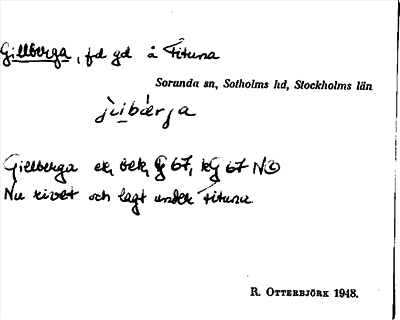 Gillberga, fd gd å Fituna
Sorunda sn, Sotholms hd, Stockholms län
Gillberga ek, 67, 67 NO
Nu rivet och lagt under Fituna
R. OTTERBJÖRK 1948.